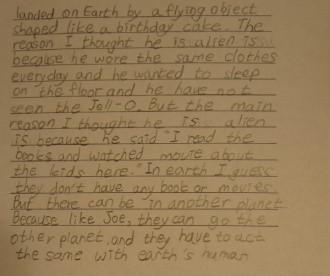 landed on Earth by a flying object
shaped like a birthday cake. The
reason I thought he is alien is
because he wore the same clothes
everyday and he wanted to sleep
on the floor and he have not
seen the Jell-O. But the main
reason I thought he is alien
is because he said "I read the
books and watched movie about
the kids here." In earth I guess
they don't have any book or movies.
But there can be in another planet
Because like Joe, they can go the
other planet. and they have to act
the same with earth's human